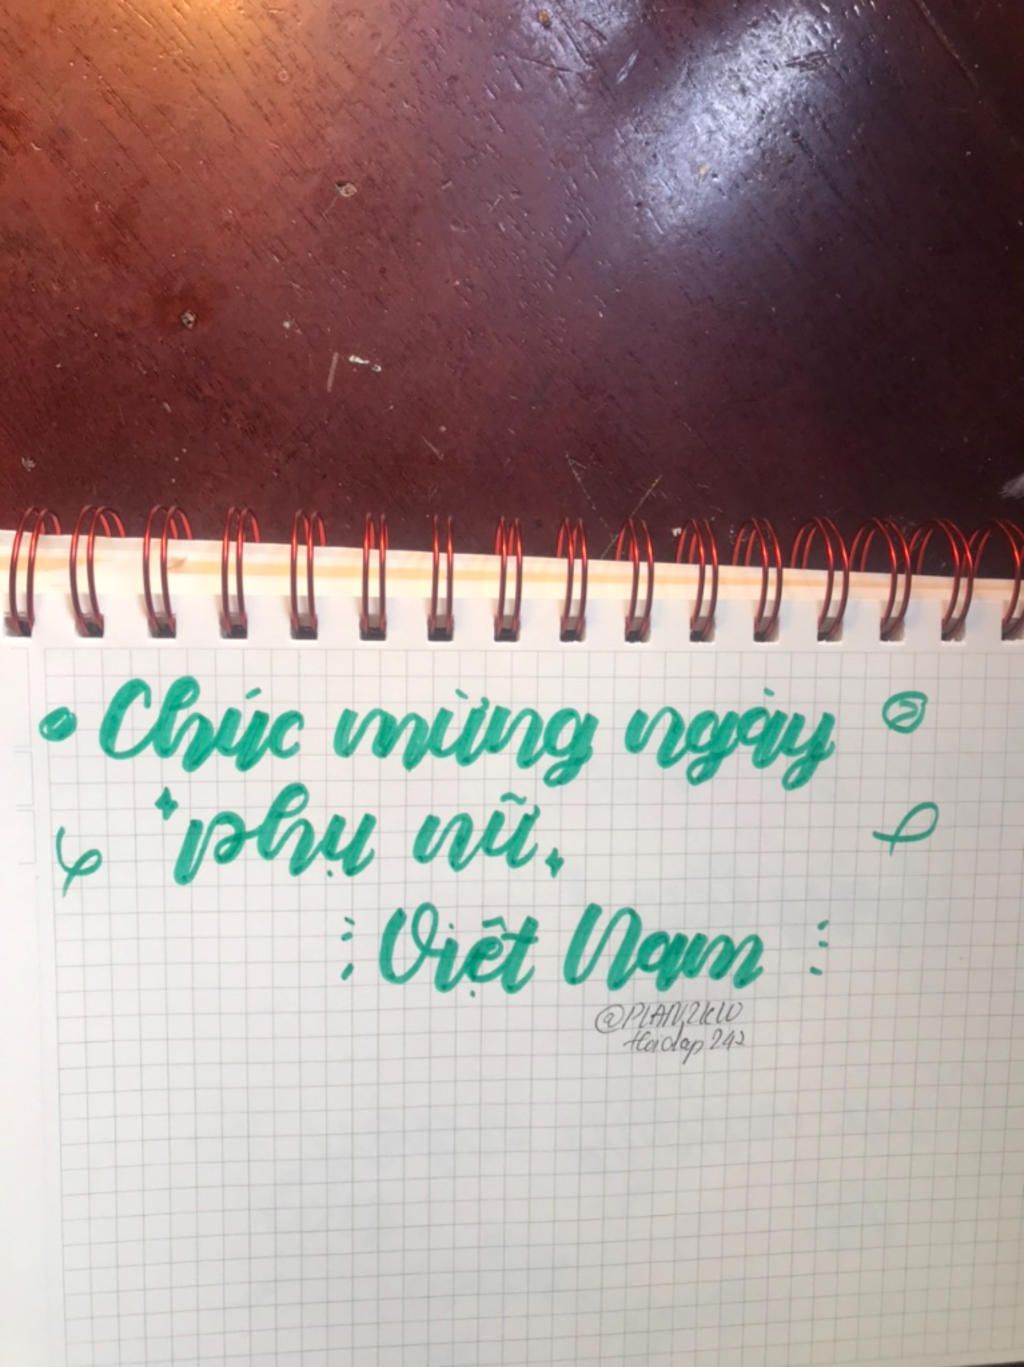 Chúc mừng ngày
phụ nữ
Việt Nam
@PLANZKW
Hoidap 242